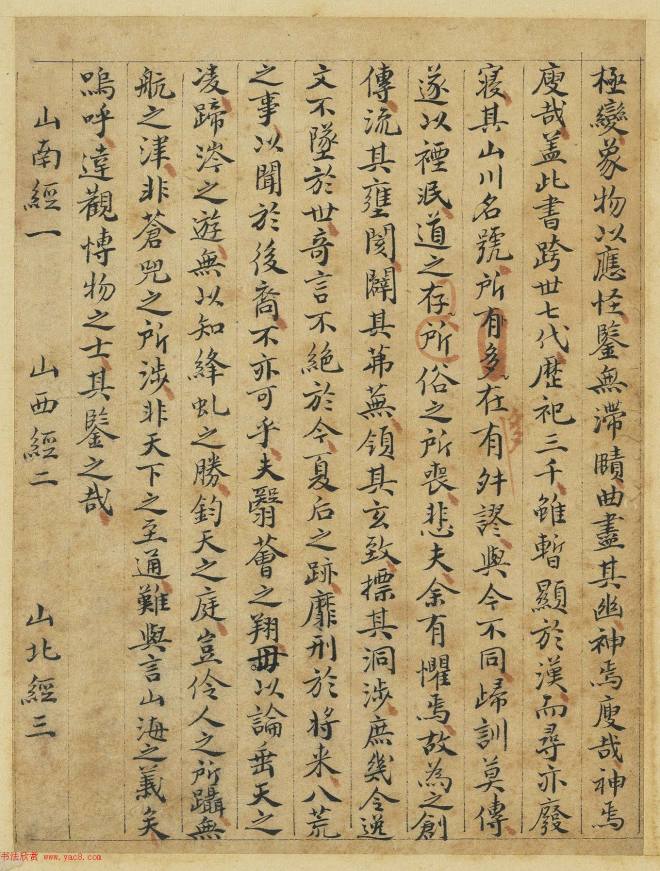 極變象物以應怪鑒無滯賾曲盡其幽神焉廋哉神焉
廋哉盖此書跨世七代歷祀三千雖暫顯於漢而尋亦廢
寢其山川名號所有多在有舛謬與今不同歸訓莫傳
遂以禋泯道之存所俗之所喪悲夫余有懼焉故為之創
傳流其壅閡闢其茀蕪領其玄致摽其洞涉庶幾令逸
文不墜於世竒言不絕於今夏后之跡靡刑於將来八荒
之事以聞於後裔不亦可乎夫翳薈之翔毋以論垂天之
凌蹄涔之遊無以知絳虬之勝鈞天之庭豈伶人之所躡無
航之津非蒼兕之所涉非天下之至通難與言山海之義矣
嗚呼達觀博物之士其鑒之哉
山南經一 山西經二 山北經三
多
书法欣赏 www.yac8.com